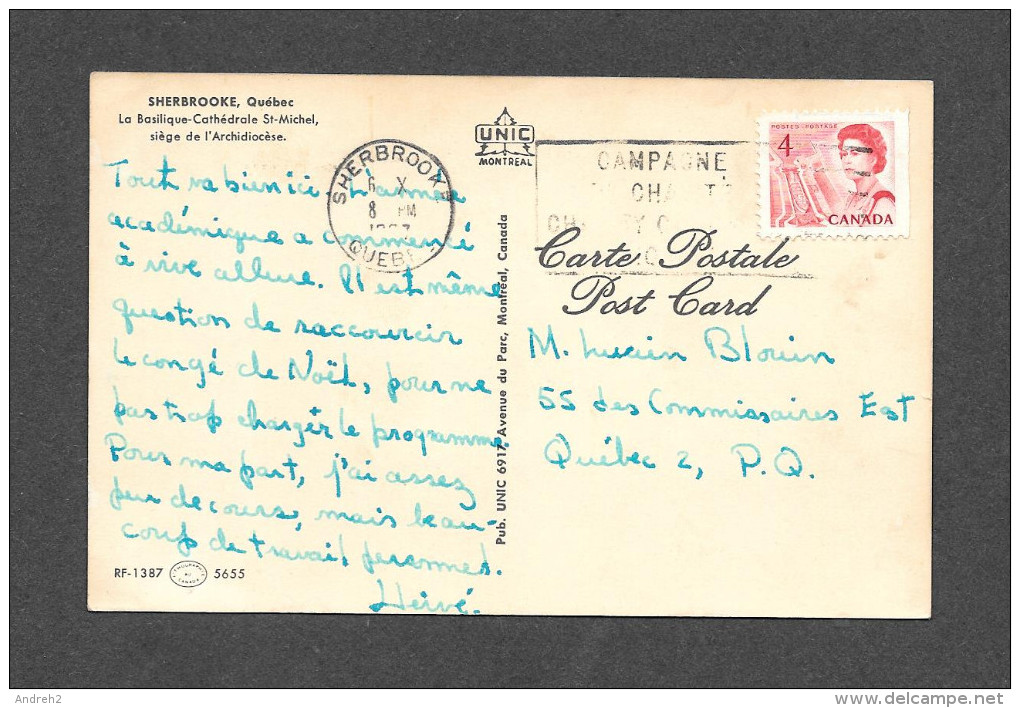 SHERBROOKE, Québec
La Basilique-Cathédrale St-Michel,
siège de l'Archidiocèse.
UNIC
MONTREAL
SHERBROOKE
6 X
8 PM
QUEBEC
CAMPAGNE
POSTES-POSTAGE
4
CANADA
Carte Postale
Post Card
Tout va bien ici. L'année
académique a commencé
à vive allure. Il est même
question de raccourcir
le congé de Noël, pour ne
pas trop charger le programme.
Pour ma part, j'ai assez
peu de cours, mais beau-
coup de travail personnel.
Hervé.
M. Lucien Blouin
55 des Commissaires Est
Québec 2, P.Q.
Pub. UNIC 6917, Avenue du Parc, Montréal, Canada
RF-1387 5655
Andreh2